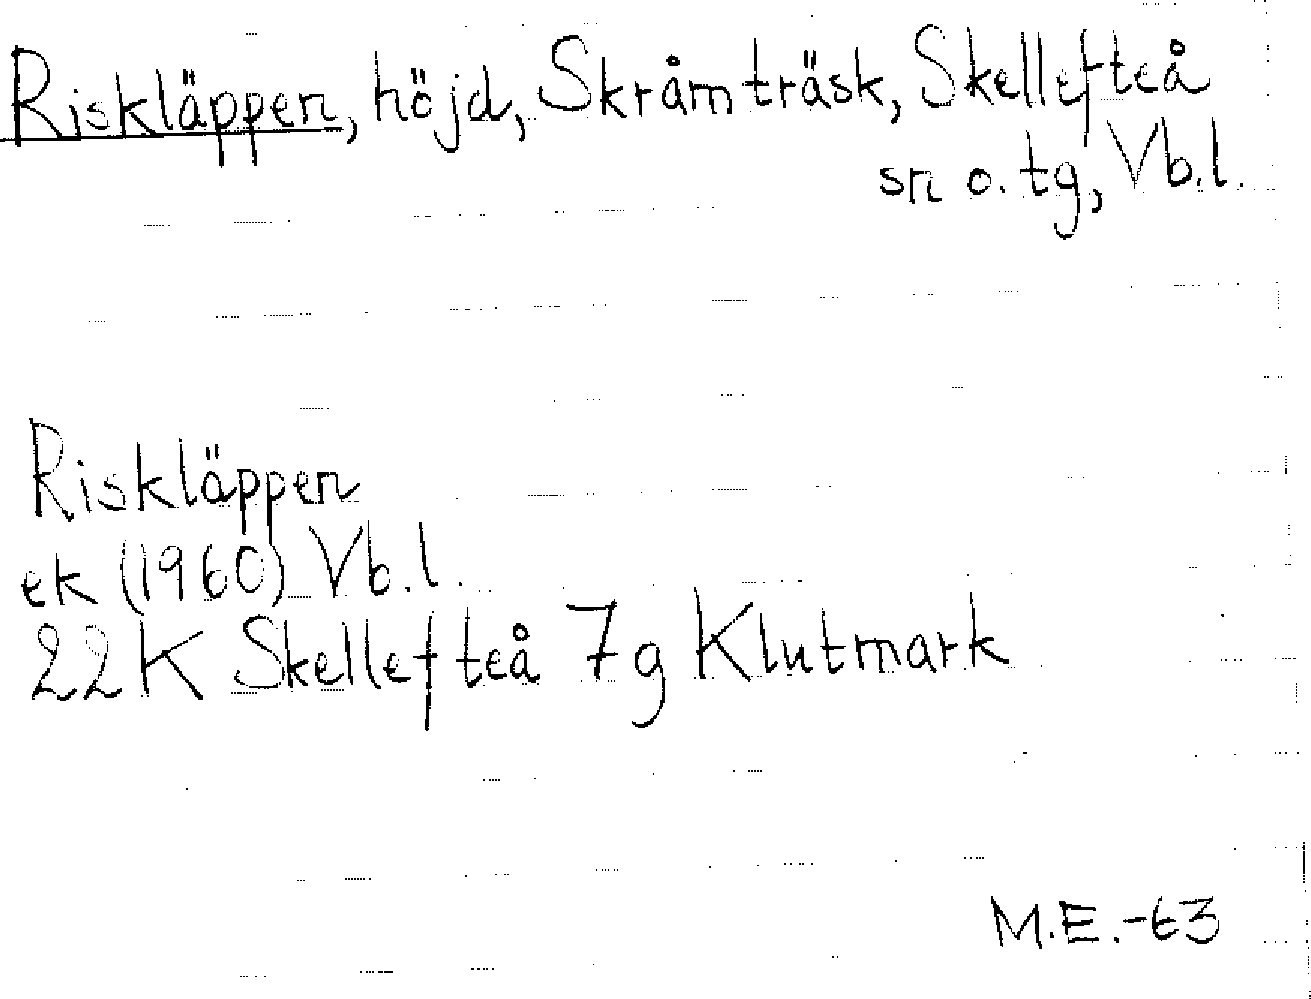 Riskläppen, höjd, Skråmträsk, Skellefteå
sn o. tg, Vb.l.
Riskläppen
ek (1960) Vb.l.
22K Skellefteå 7g Klutmark
M.E.-63